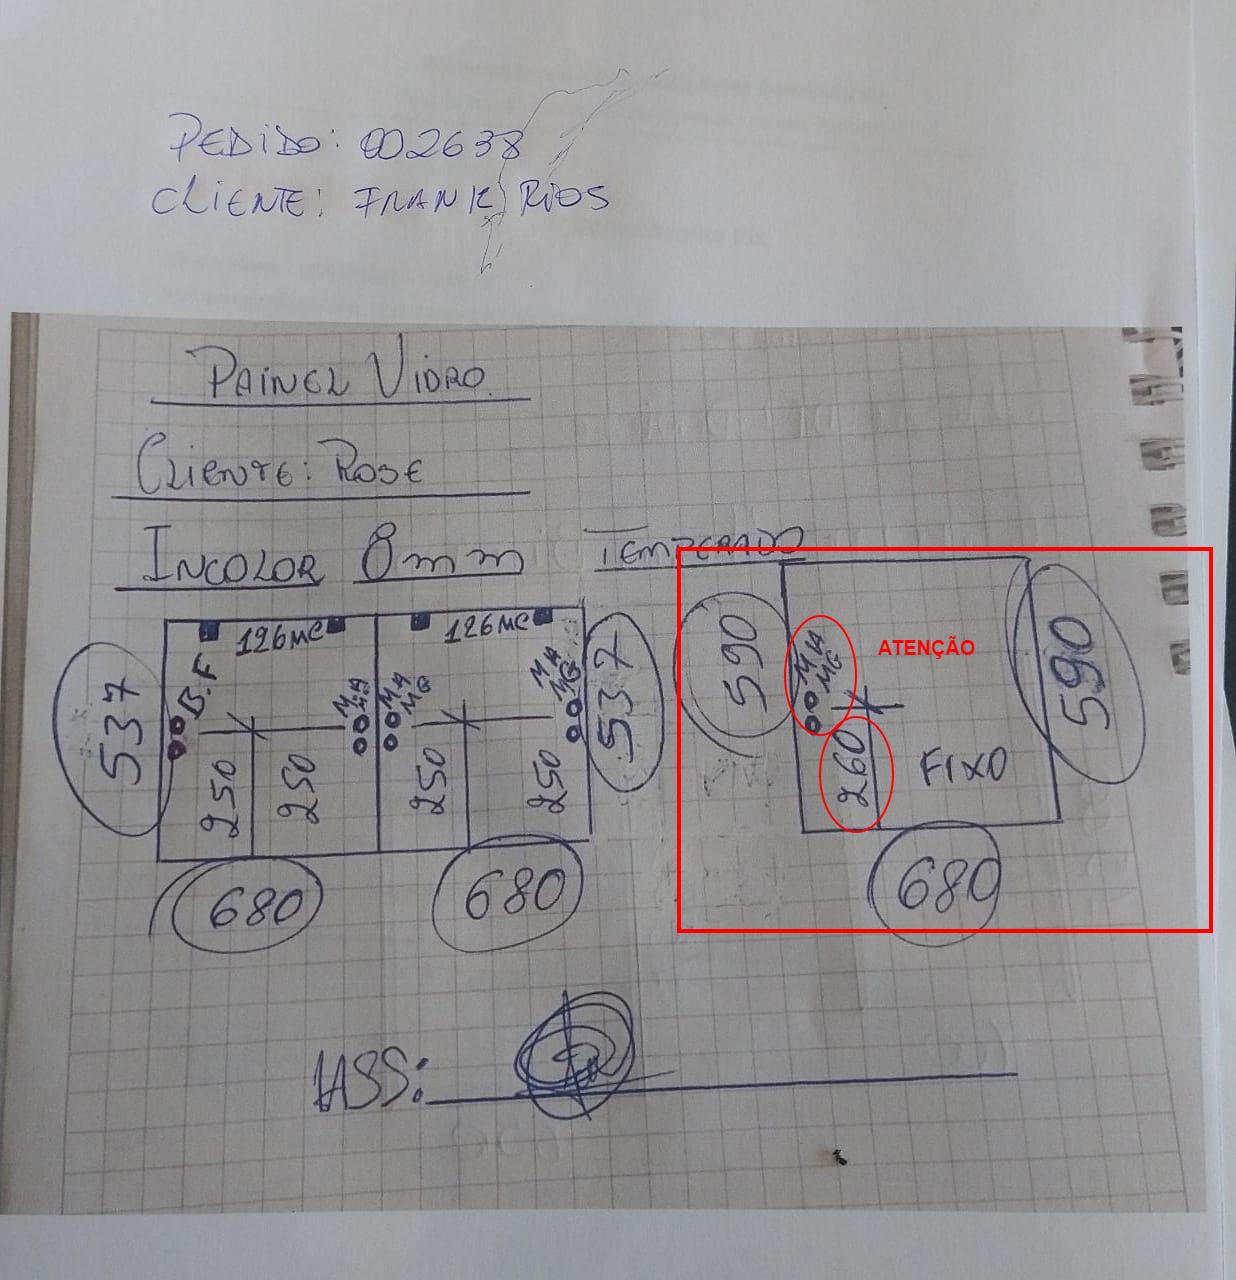 PEDIDO: 002638
CLIENTE: FRANK RIOS
PAINEL VIDRO
CLIENTE: ROSE
INCOLOR 8mm TEMPERADO
126MC
126MC
537
B.F
MA
MA
MG
MA
MG
537
250
250
250
250
680
680
590
MA
MG
ATENÇÃO
590
260
FIXO
680
ASS: